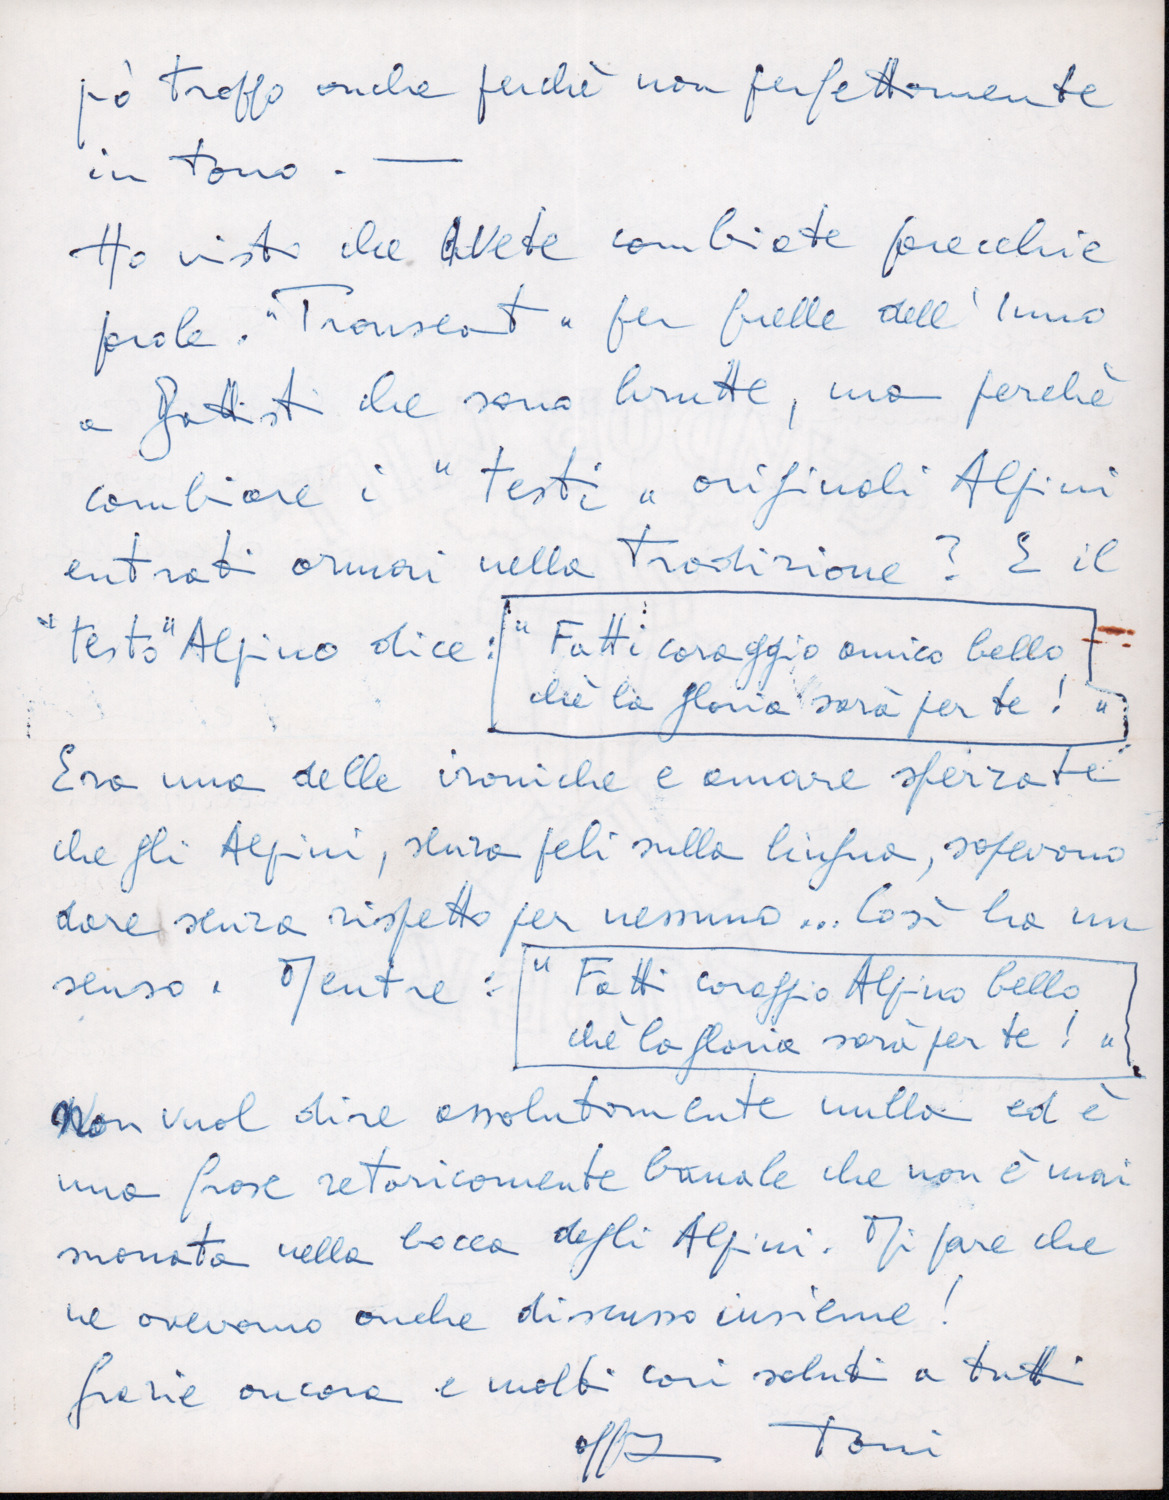 pò troppo anche perchè non perfettamente
in tono. —
Ho visto che avete cambiate parecchie
parole. "Transeat" per quelle dell'Inno
a Battisti che sono brutte, ma perchè
cambiare i "testi" originali Alpini
entrati ormai nella tradizione? E il
"testo" Alpino dice: "Fatti coraggio amico bello
chè la gloria sarà per te!"
Era una delle ironiche e amare sferzate
che gli Alpini, senza peli sulla lingua, sapevano
dare senza rispetto per nessuno... Così ha un
senso. Mentre: "Fatti coraggio Alpino bello
chè la gloria sarà per te!"
Non vuol dire assolutamente nulla ed è
una frase retoricamente banale che non è mai
suonata nella bocca degli Alpini. Mi pare che
ne avevamo anche discusso insieme!
Grazie ancora e molti cari saluti a tutti
Toni